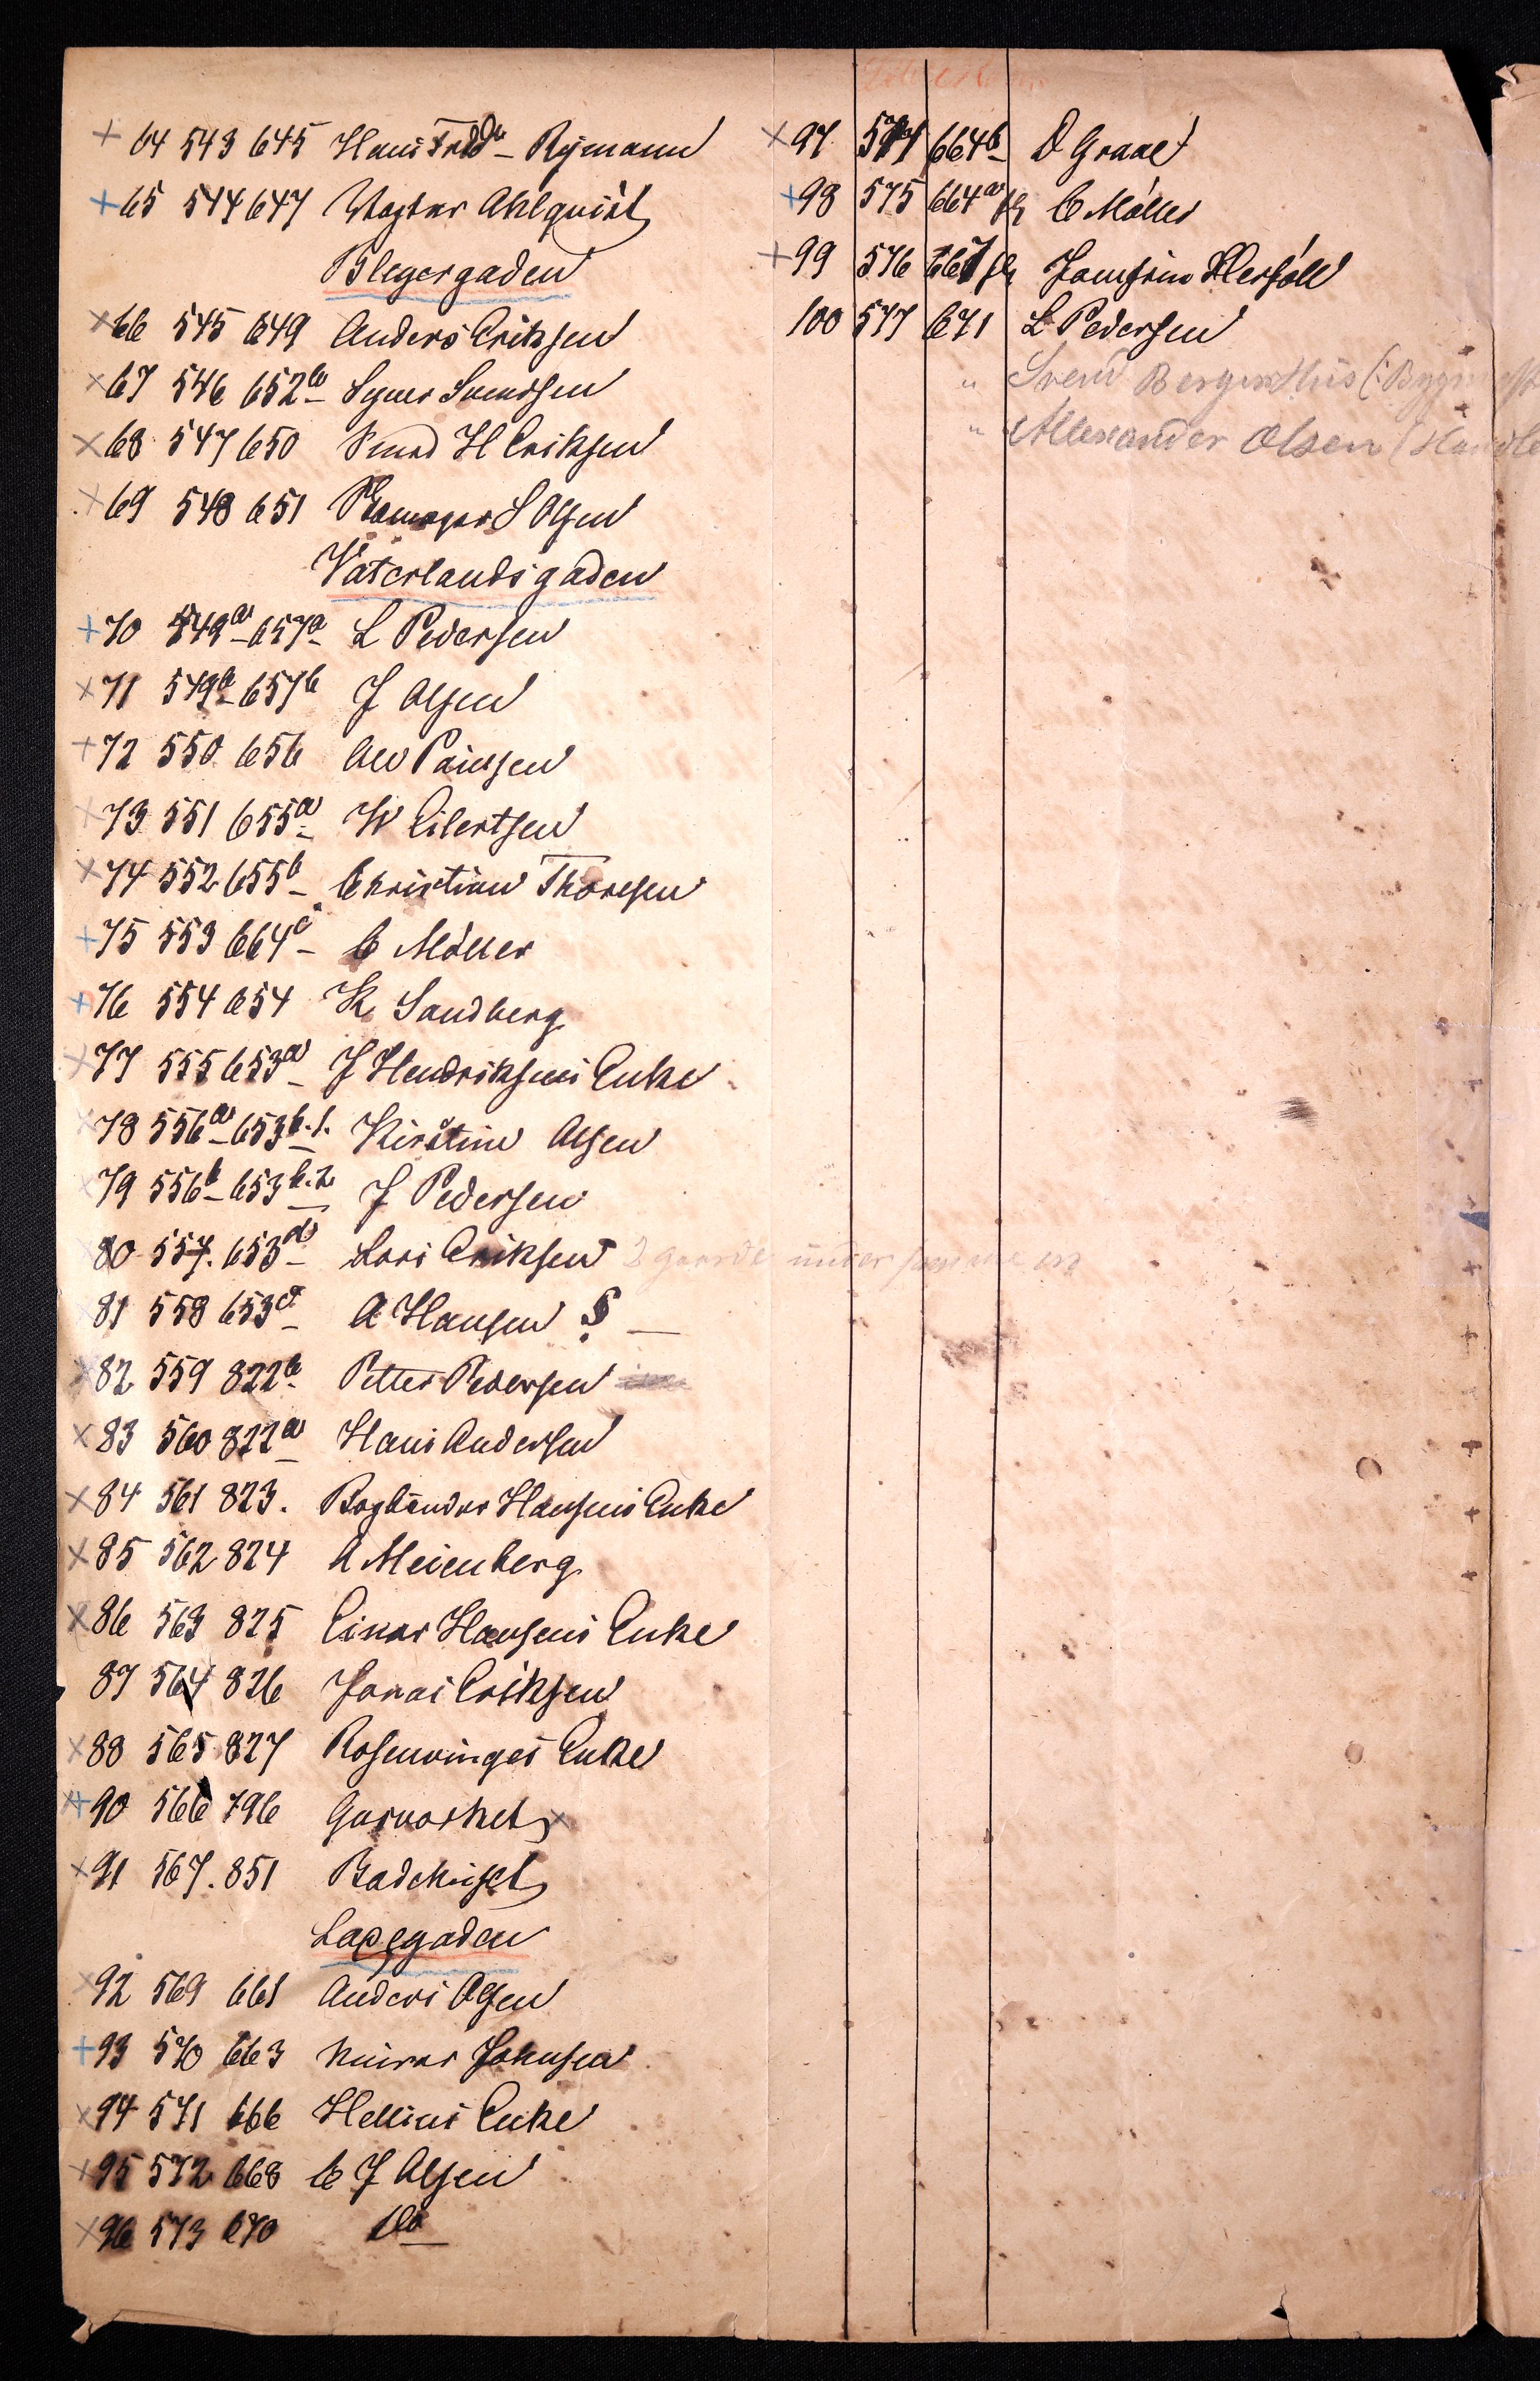 + 64 543 645 Hans Fredr – Rymann
+ 65 544 647 Vægter Ahlquist
Blegergaden
× 66 545 649 Anders Eriksen
× 67 546 652 b Syver Svendsen
× 68 547 650 Svend H Eriksen
× 69 548 651 S Olsen
Vaterlandsgaden
+ 70 549 a – 657 a L Pedersen
× 71 549 b – 657 b J Olsen
+ 72 550 656 Paulsen
73 551 655 a W Eilertsen
× 74 552 655 b – Christian Thoresen
+ 75 553 664 c – C Möller
+ 76 554 654 K Sandberg
× 77 555 653 a – J Hendriksens Enke
× 78 556 a – 653 b.1. Kirstine Olsen
79 556 b – 653 b.2. J Pedersen
80 557. 653 d – Lars Eriksen 2 gaarde under samme
81 558 653 c – A Hansen § —
× 82 559 822 b – Petter Pedersen
× 83 560 822 a Hans Andersen
× 84 561 823. Bogbinder Hansens Enke
× 85 562 824 A Meienberg
× 86 563 825 Einar Hansens Enke
87 564 826 Jonas Eriksen
× 88 565 827 Rosenvinges Enke
+ 90 566 796 Garveriet ×
× 91 567. 851 Badehuset
Laxegaden
× 92 569 661 Anders Olsen
+ 93 570 663 Murer Johnsen
× 94 571 666 Hellins Enke
× 95 572 668 C J Olsen
× 96 573 670 Do
× 97 574 664 b – D Graae
+ 98 575 664 a C Möller
+ 99 576 667 Jomfru Herföll
100 577 671 L Pedersen
" Svend Bergerhus (: Bygm
" Allexander Olsen (Handle